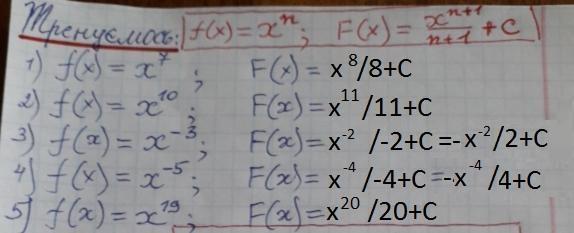 Тренуємось: f(x) = xⁿ; F(x) = xⁿ⁺¹/n+1 + C
1) f(x) = x⁷; F(x) = x⁸/8+C
2) f(x) = x¹⁰; F(x) = x¹¹/11+C
3) f(x) = x⁻³; F(x) = x⁻² /-2+C =-x⁻²/2+C
4) f(x) = x⁻⁵; F(x) = x⁻⁴ /-4+C =-x⁻⁴ /4+C
5) f(x) = x¹⁹; F(x) = x²⁰ /20+C